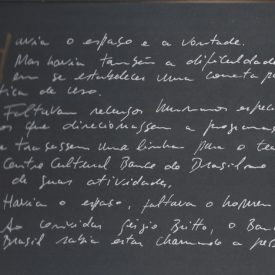 avia o espaço e a vontade.
Mas havia também a dificuldade
em se estabelecer uma meta pa
tica de uso.
Faltavam recursos humanos espec
os que direcionassem a programaç
e traçassem uma linha para o tea
Centro Cultural Banco do Brasil no
de suas atividades.
Havia o espaço, faltava o homem
Ao convidar Sérgio Britto, o Ban
Brasil sabia estar chamando a pess